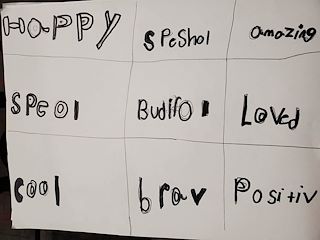 HaPPY
SPeshol
amazing
SPeol
Budlfol
Loved
cool
brav
Positiv